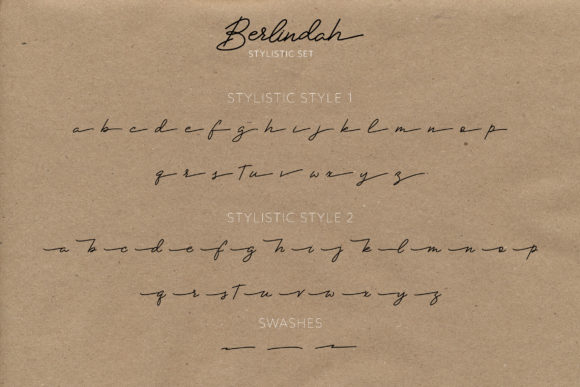 Berlindah
STYLISTIC SET
STYLISTIC STYLE 1
a b c d e f g h i j k l m n o p
q r s t u v w x y z
STYLISTIC STYLE 2
a b c d e f g h i j k l m n o p
q r s t u v w x y z
SWASHES